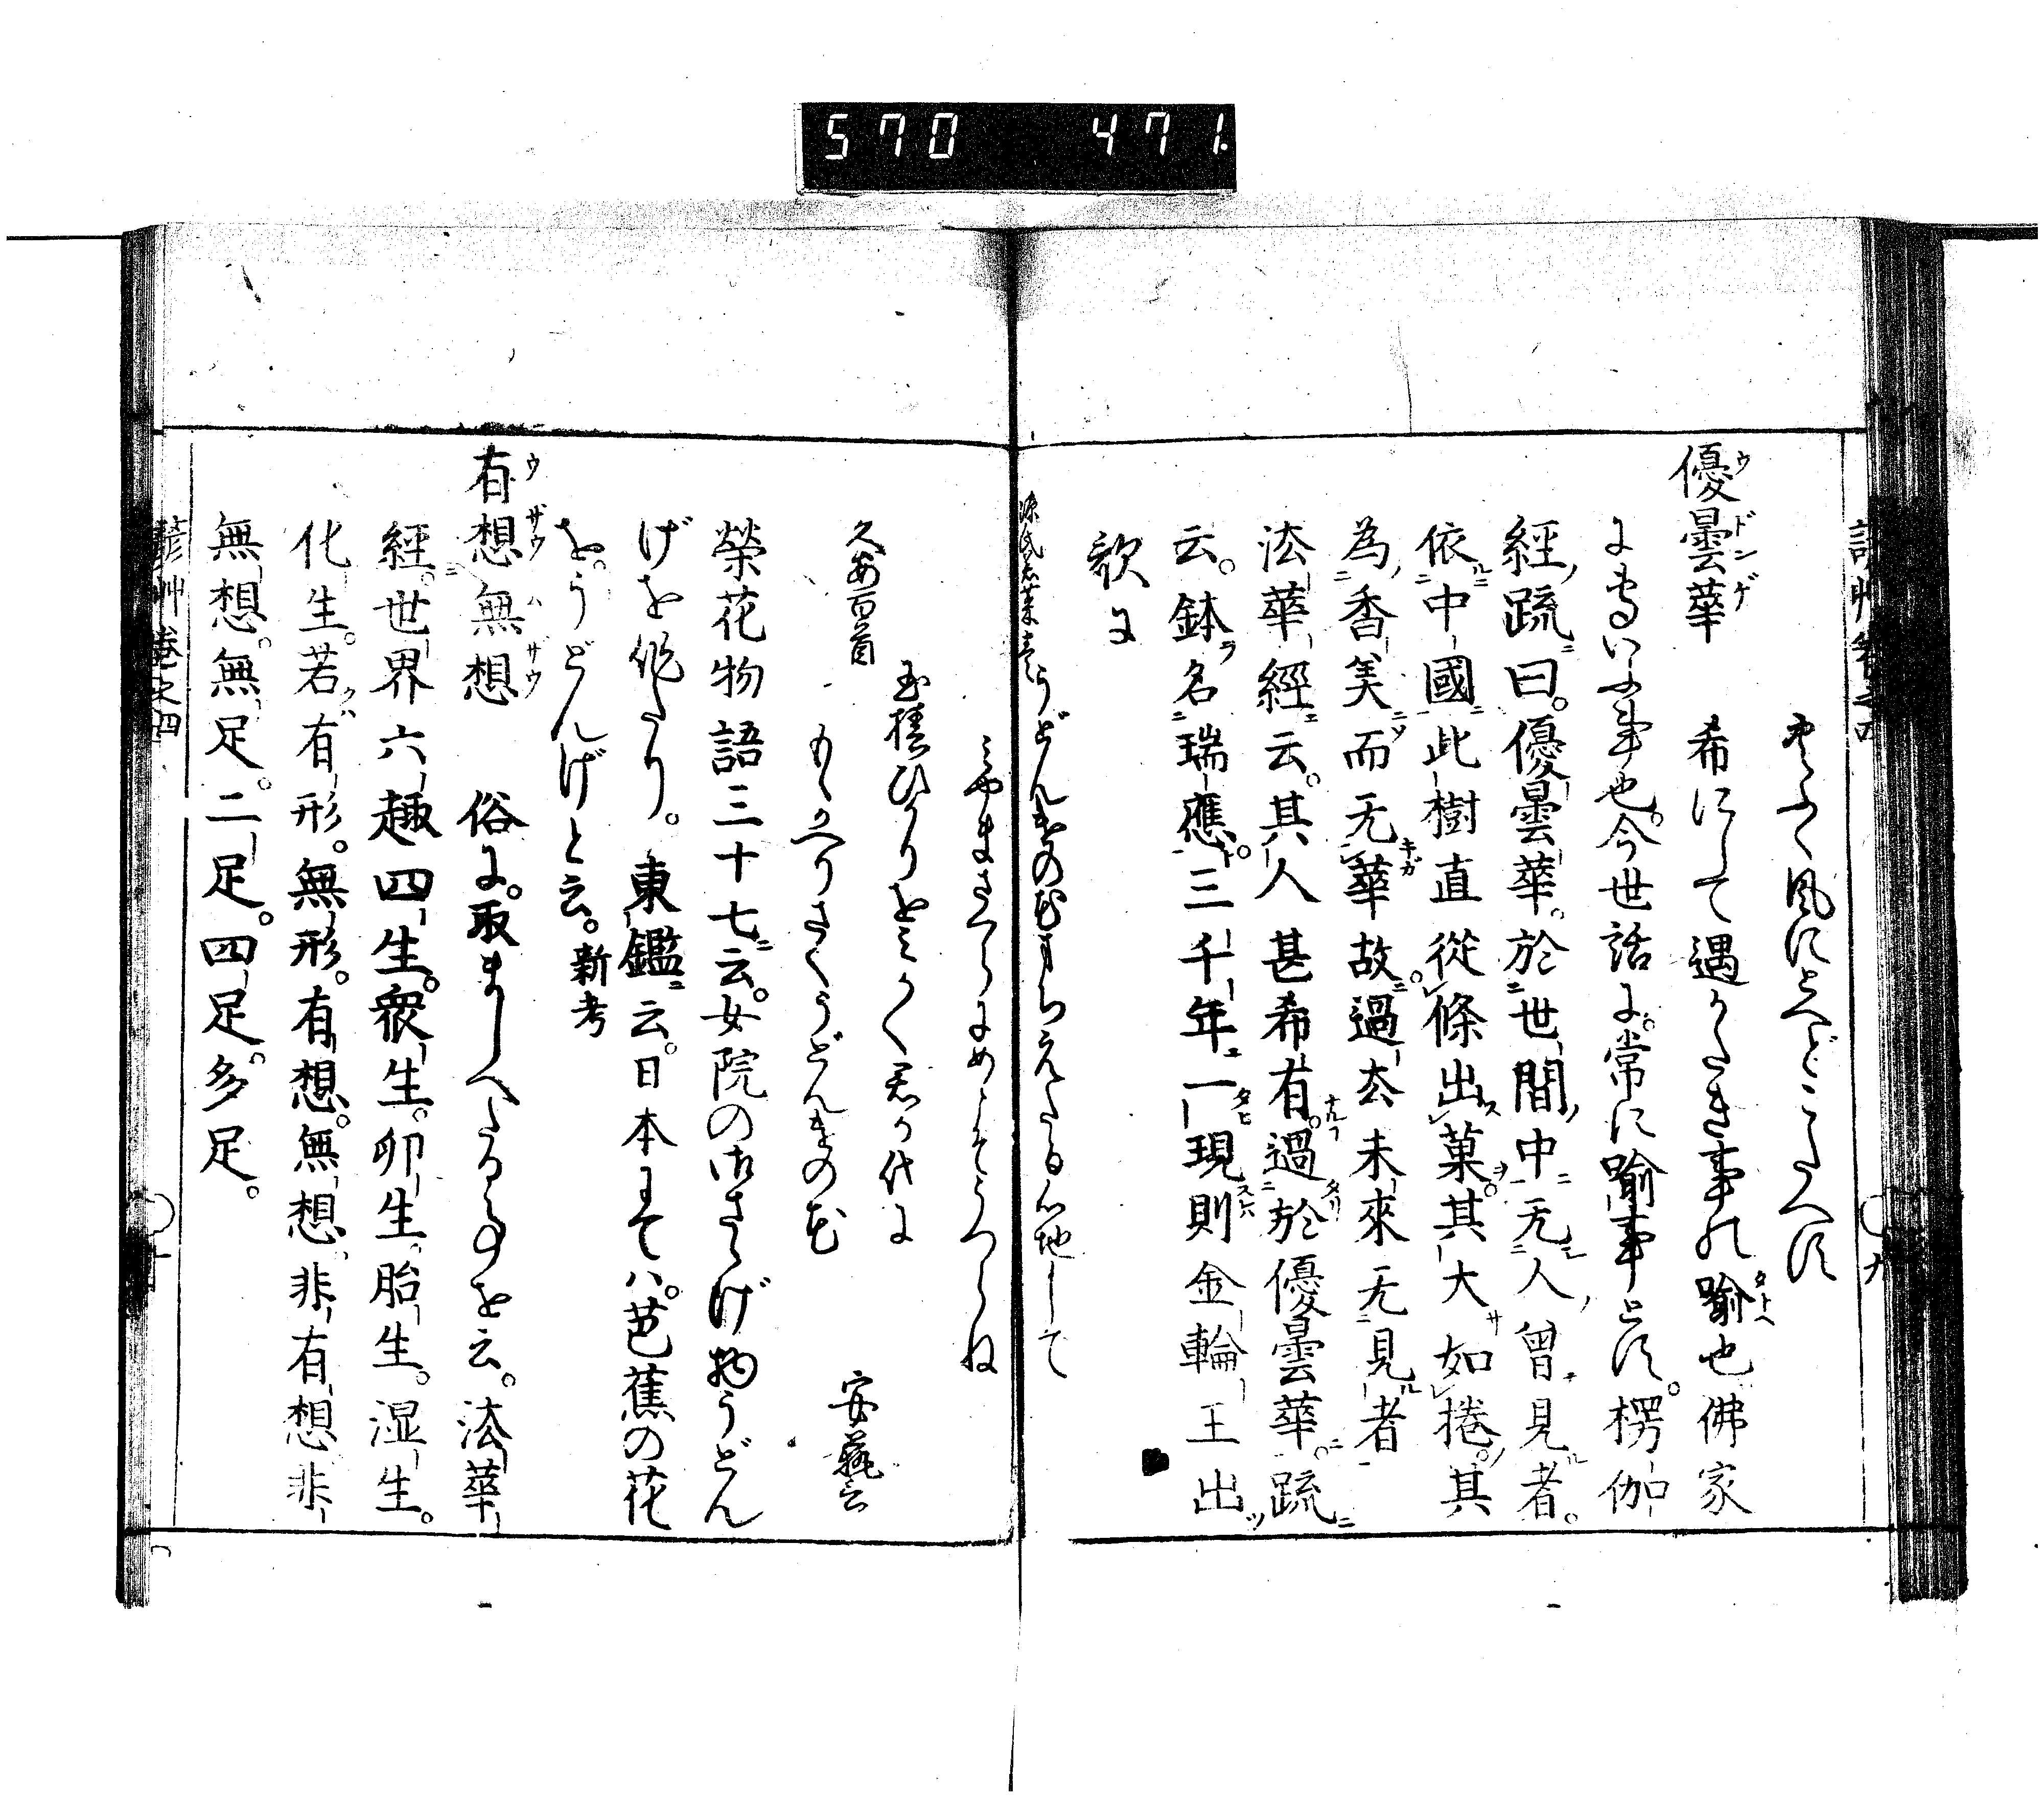 570 471
諺艸巻之四
吹ふく風にとへどこたへぬ
優曇華 希にして遇かたき事の喩也佛家
にいふ事也。今世話に。常に喩事とす。楞伽
經疏曰。優曇華。於世間中无人曾見者。
依中國此樹直從條出菓。其大如捲。其
為香美而无華故。過去未來无見者
法華經云。其人甚希有。過於優曇華。疏
云。鉢名瑞應。三千年一現則金輪王出
歌に
源氏若菜 うどんげの花まちえたる心地して
みやまさくらにめこそうつらね
久安百首 玉椿ひかりをみかく君か代に
もゝかへりさくうどんげの花 安藝
榮花物語三十七云。女院の御さゝげ物うどん
げを作たり。東鑑云。日本にては。芭蕉の花
を。うどんげと云。新考
有想無想 俗に。取ましへたる事を云。法華
經。世界六趣四生。衆生。卵生。胎生。湿生。
化生。若有形。無形。有想。無想。非有想非
無想。無足。二足。四足。多足。
諺艸巻之四